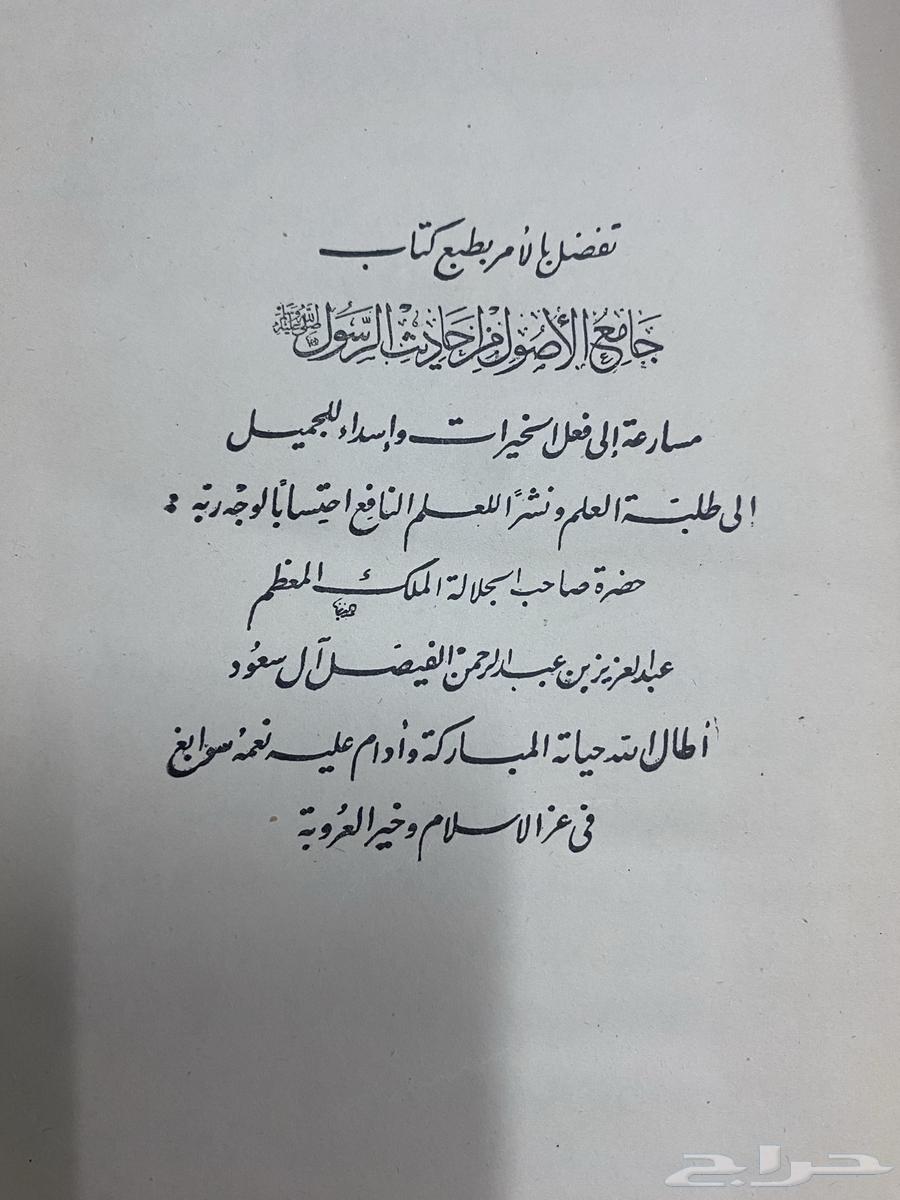 تفضل بالأمر بطبع كتاب
جَامِعُ الأُصُولِ مِنْ أَحَادِيثِ الرَّسُولِ ﷺ
مسارعة إلى فعل الخيرات وإسداء للجميل
إلى طلبة العلم ونشرًا للعلم النافع احتسابًا لوجه ربه
حضرة صاحب الجلالة الملك المعظم
عبدالعزيز بن عبدالرحمن الفيصل آل سعُود
أطال الله حياته المباركة وأدام عليه نعمهُ سوابغ
فى عز الاسلام وخير العرُوبة
حراج